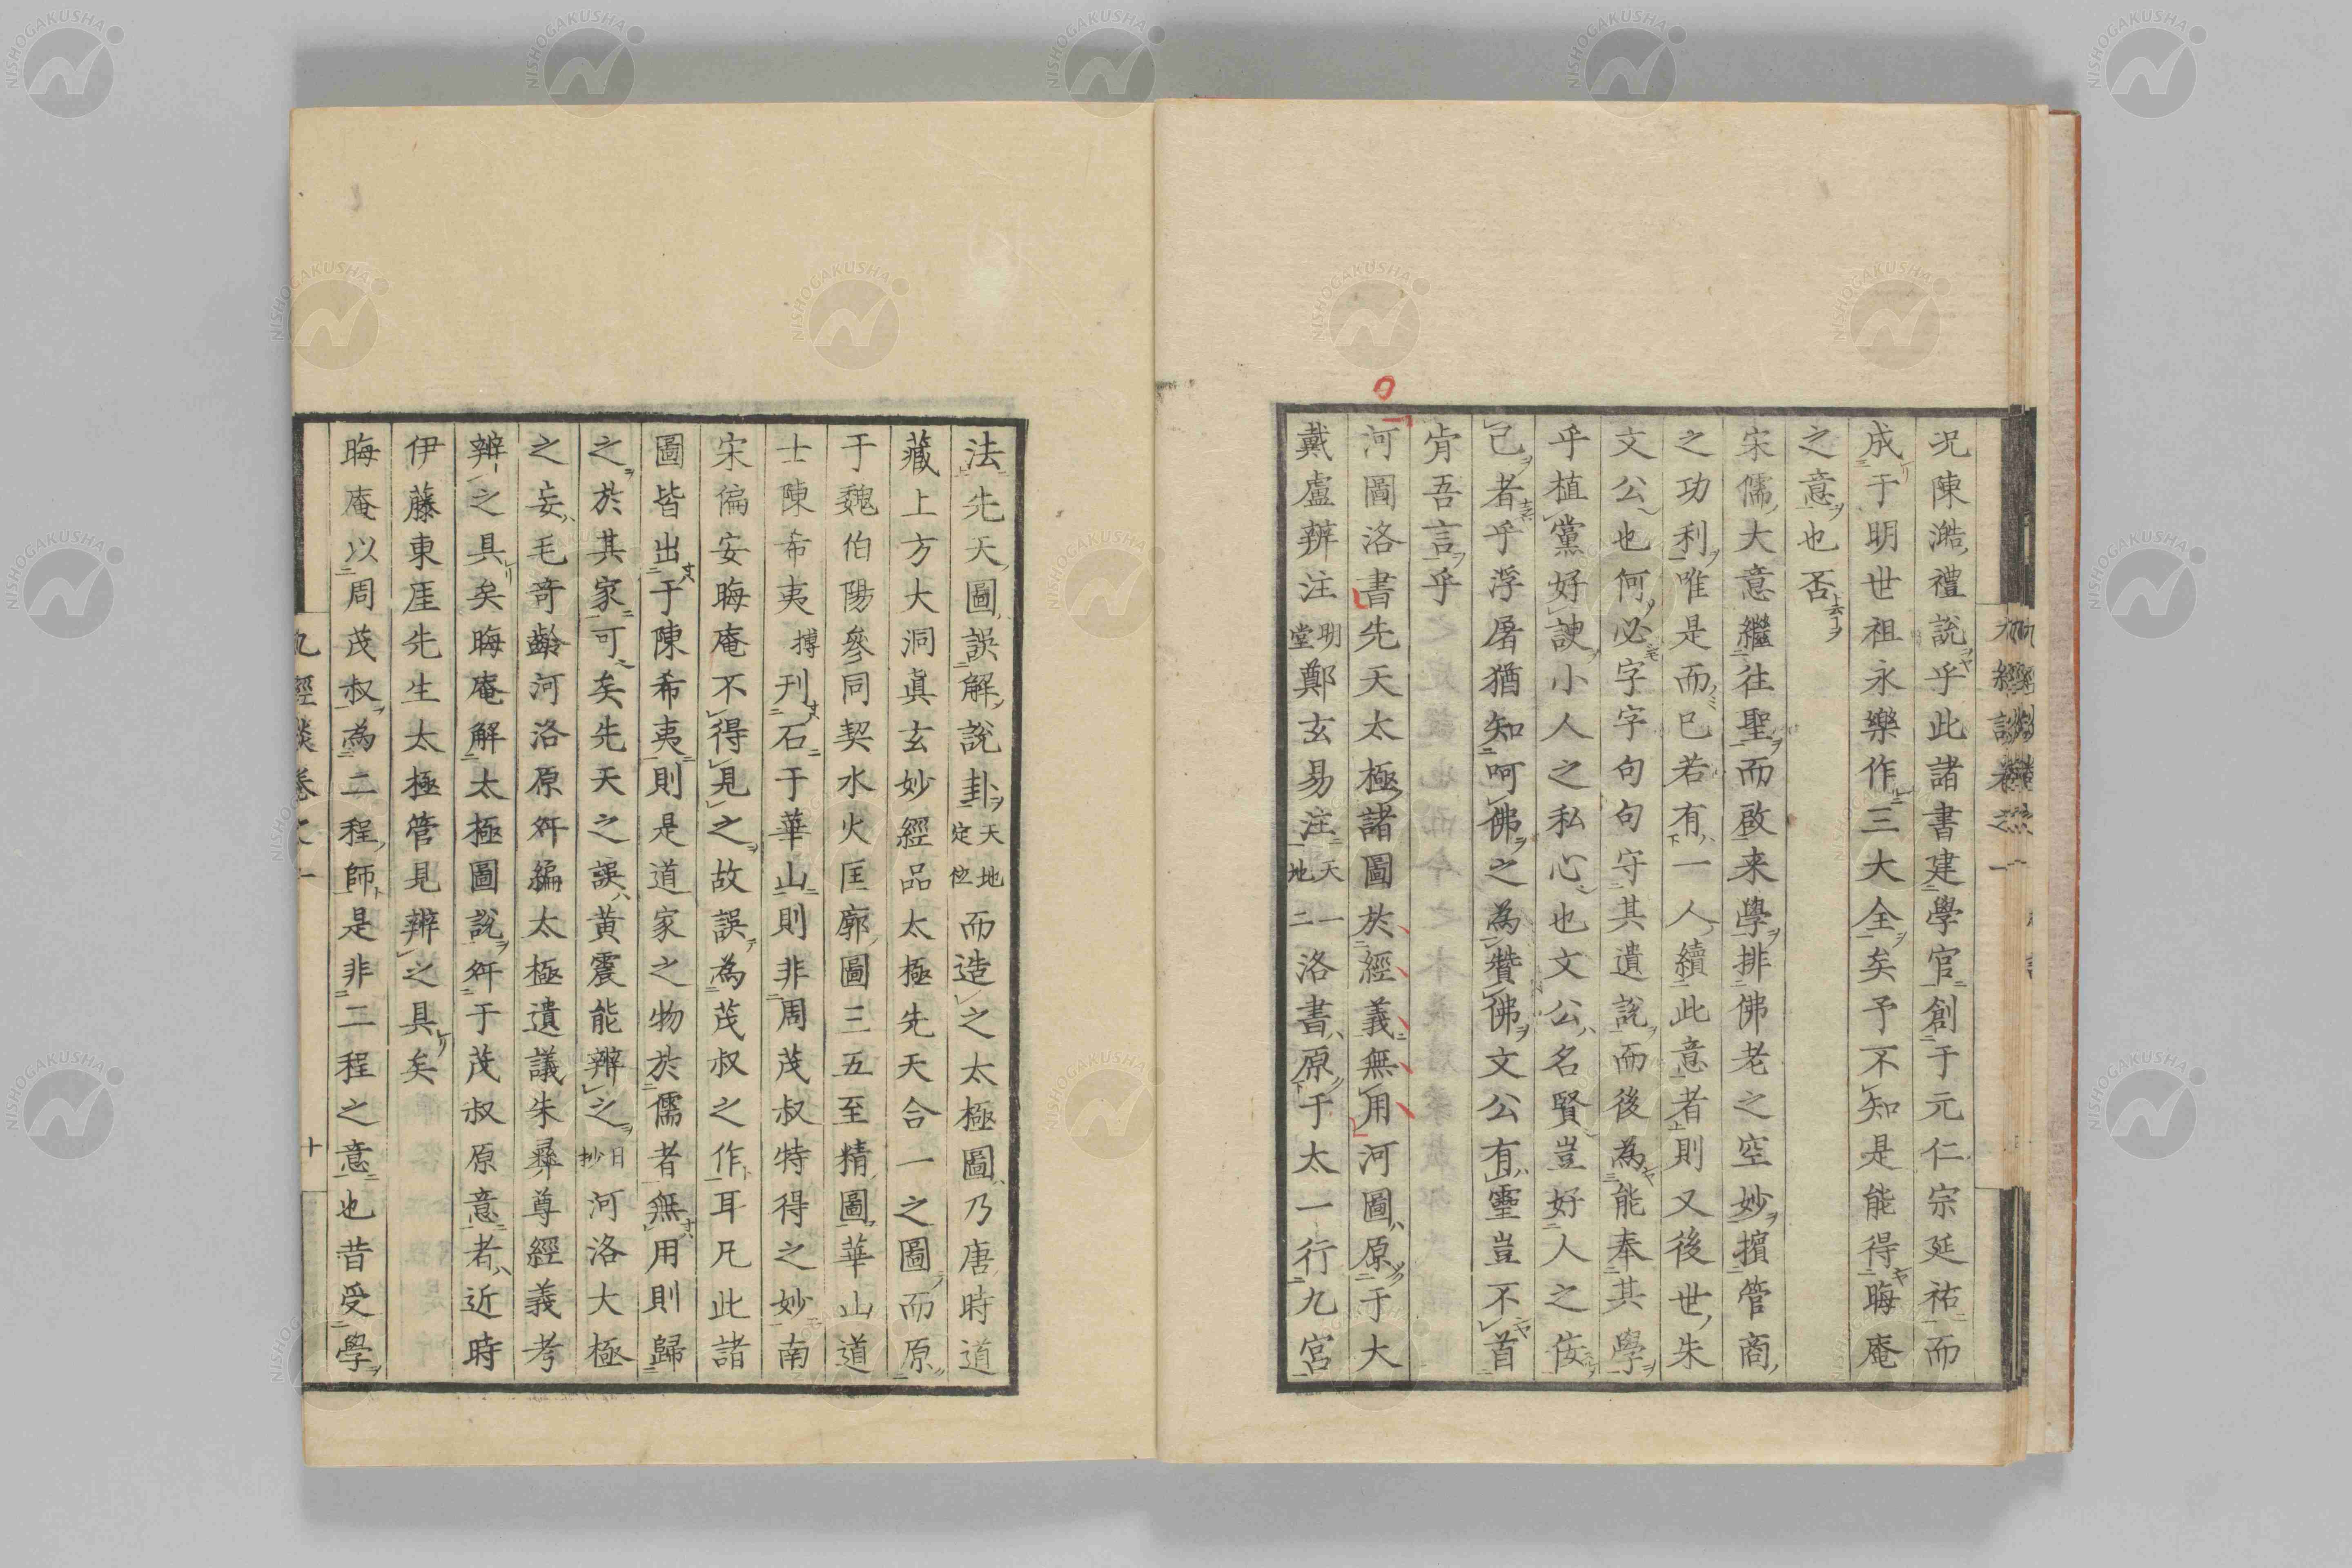 況陳澔禮說乎此諸書建學官創于元仁宗延祐而
成于明世祖永樂作三大全矣予不知是能得晦庵
之意也否
宋儒大意繼往聖而啟来學排佛老之空妙擯管商
之功利唯是而已若有一人續此意者則又後世朱
文公也何必字字句句守其遺說而後為能奉其學
乎植黨好諛小人之私心也文公名賢豈好人之侫
己者乎浮屠猶知呵佛之為贊佛文公有靈豈不首
肯吾言乎
河圖洛書先天太極諸圖於經義無用河圖原于大
戴盧辨注明堂鄭玄易注天地一二洛書原于太一行九宮
法先天圖誤解說卦天地定位而造之太極圖乃唐時道
藏上方大洞眞玄妙經品太極先天合一之圖而原
于魏伯陽參同契水火匡廓圖三五至精圖華山道
士陳希夷摶刊石于華山則非周茂叔特得之妙南
宋偏安晦庵不得見之故誤為茂叔之作耳凡此諸
圖皆出于陳希夷則是道家之物於儒者無用則歸
之於其家可矣先天之誤黄震能辨之日抄河洛大極
之妄毛竒齡河洛原舛編太極遺議朱彛尊經義考
辨之具矣晦庵解太極圖說舛于茂叔原意者近時
伊藤東厓先生太極管見辨之具矣
晦庵以周茂叔為二程師是非二程之意也昔受學
九經談卷之一
十